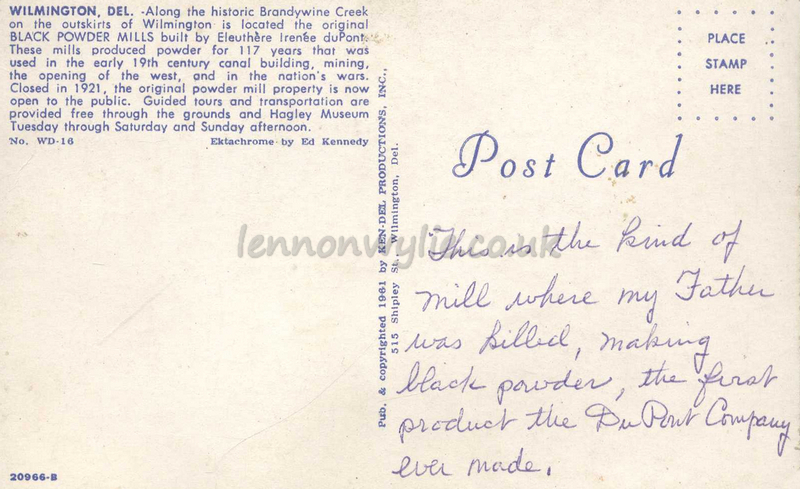 WILMINGTON, DEL. -Along the historic Brandywine Creek
on the outskirts of Wilmington is located the original
BLACK POWDER MILLS built by Eleuthère Irenée duPont.
These mills produced powder for 117 years that was
used in the early 19th century canal building, mining,
the opening of the west, and in the nation's wars.
Closed in 1921, the original powder mill property is now
open to the public. Guided tours and transportation are
provided free through the grounds and Hagley Museum
Tuesday through Saturday and Sunday afternoon.
No. WD-16 Ektachrome by Ed Kennedy
20966-B
Pub. & copyrighted 1961 by KEN-DEL PRODUCTIONS, INC.,
515 Shipley St., Wilmington, Del.
PLACE
STAMP
HERE
Post Card
lennonwylie.co.uk
This is the kind of
mill where my Father
was killed, making
black powder, the first
product the DuPont Company
ever made.